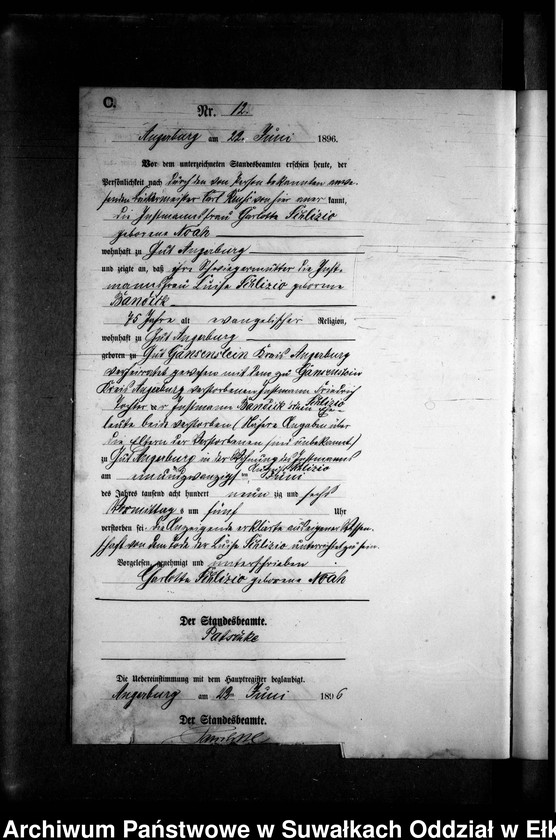 C.
Nr. 12.
Angerburg am 22. Juni 1896.
Vor dem unterzeichneten Standesbeamten erschien heute, der
Persönlichkeit nach durch den von Person bekannten anwe-
senden Carl von hier aner kannt,
die Instmannsfrau Charlotte Schlizio
geborene Noah
wohnhaft zu Gut Angerburg
und zeigte an, daß ihre Schwiegermutter die Inst-
mannsfrau Luise Schlizio geborene
Bandzik
75 Jahre alt evangelischer Religion,
wohnhaft zu Gut Angerburg
geboren zu Gut Gansenstein Kreis Angerburg
verheirathet gewesen mit dem zu Gansenstein
Kreis Angerburg verstorbenen Instmann Friedrich
Schlizio
Tochter der Instmann Bandzik'schen Ehe-
leute beide verstorben (Nähere Angaben über
die Eltern der Verstorbenen sind unbekannt)
zu Gut Angerburg in der Wohnung des Instmanns
Schlizio
am einundzwanzigsten Juni
des Jahres tausend acht hundert neun zig und sechs
Vormittags um fünf Uhr
verstorben sei. Die Anzeigende erklärte aus eigener Wissen-
schaft von dem Tode der Luise Schlizio unterrichtet zu sein.
Vorgelesen, genehmigt und unterschrieben
Charlotte Schlizio geborene Noah
Der Standesbeamte.
Die Uebereinstimmung mit dem Hauptregister beglaubigt.
Angerburg am Juni 1896
Der Standesbeamte.
Archiwum Państwowe w Suwałkach Oddział w Ełk